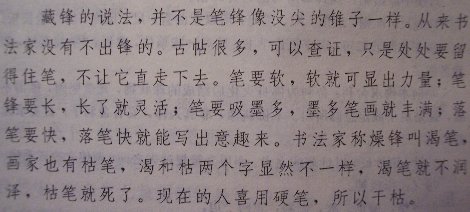 藏锋的说法，并不是笔锋像没尖的锥子一样。从来书
法家没有不出锋的。古帖很多，可以查证，只是处处要留
得住笔，不让它直走下去。笔要软，软就可显出力量；笔
锋要长，长了就灵活；笔要吸墨多，墨多笔画就丰满；落
笔要快，落笔快就能写出意趣来。书法家称燥锋叫渴笔，
画家也有枯笔，渴和枯两个字显然不一样，渴笔就不润
泽，枯笔就死了。现在的人喜用硬笔，所以干枯。